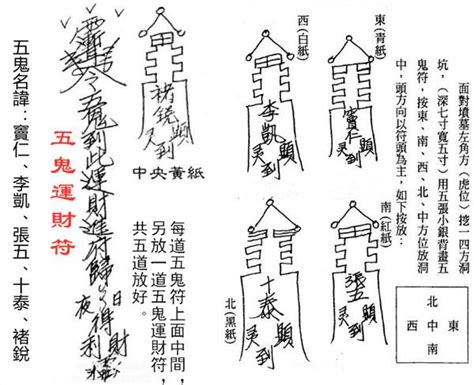 面對墳墓左角方(虎位)挖一四方
坑,(深七寸寬五寸)用五張小銀背畫五
鬼符,按東、南、西、北、中方位放洞
中,頭方向以符頭為主,如下按放:
東
北中南
西
東(青紙)
竇仁
顯
灵到
南(紅紙)
張五
顯
灵到
西(白紙)
李凱
顯
灵到
北(黑紙)
十泰
顯
灵到
褚銳
顯
灵到
中央黃紙
每道五鬼符上面中間,
另放一道五鬼運財符,
共五道放好。
令五鬼到此運財進符歸
日夜得財利
五鬼運財符
五鬼名諱:竇仁、李凱、張五、十泰、褚銳